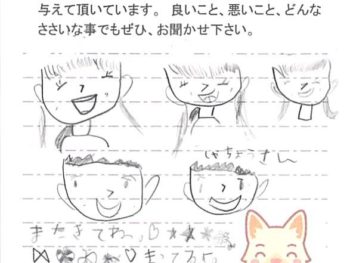 与えて頂いています。 良いこと、悪いこと、どんな
ささいな事でもぜひ、お聞かせ下さい。
しゃちょうさん
またきてねー
まってるね